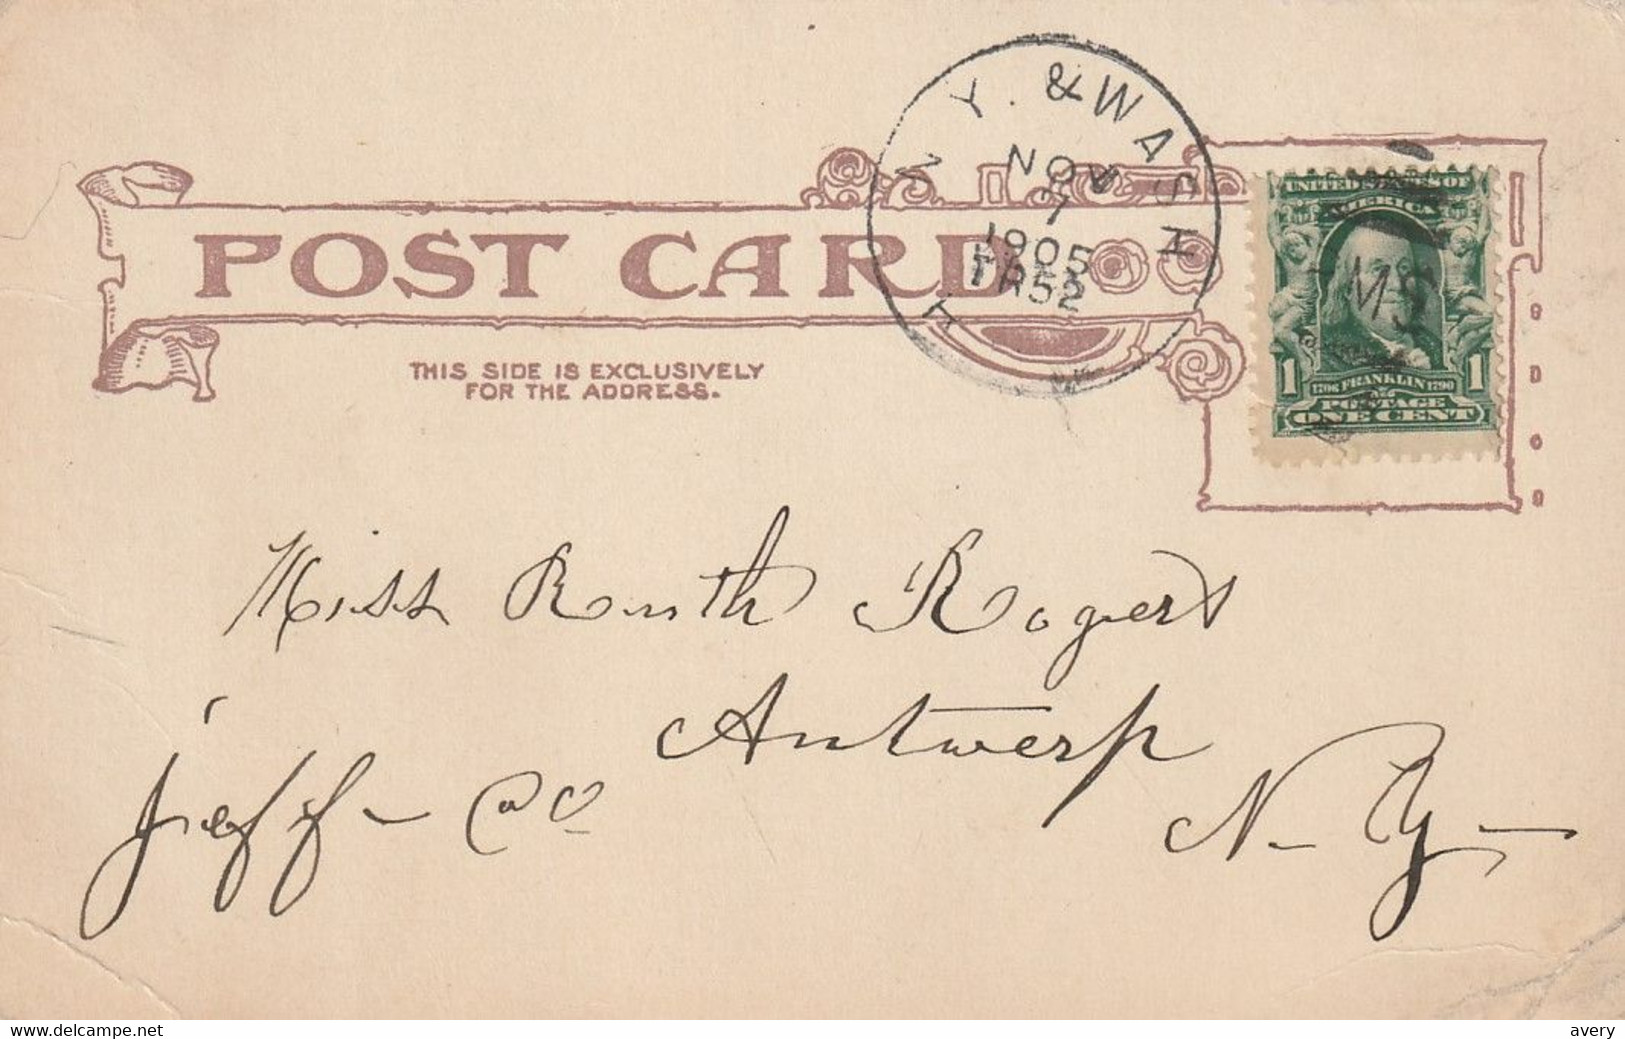 N. Y. & WASH
NOV
7
1905
TR 52
POST CARD
THIS SIDE IS EXCLUSIVELY
FOR THE ADDRESS.
UNITED STATES OF
AMERICA
1 1796 FRANKLIN 1790 1
POSTAGE
ONE CENT
Miss Ruth Rogers
Antwerp
Jeff - Co
N. Y.
www.delcampe.net
avery